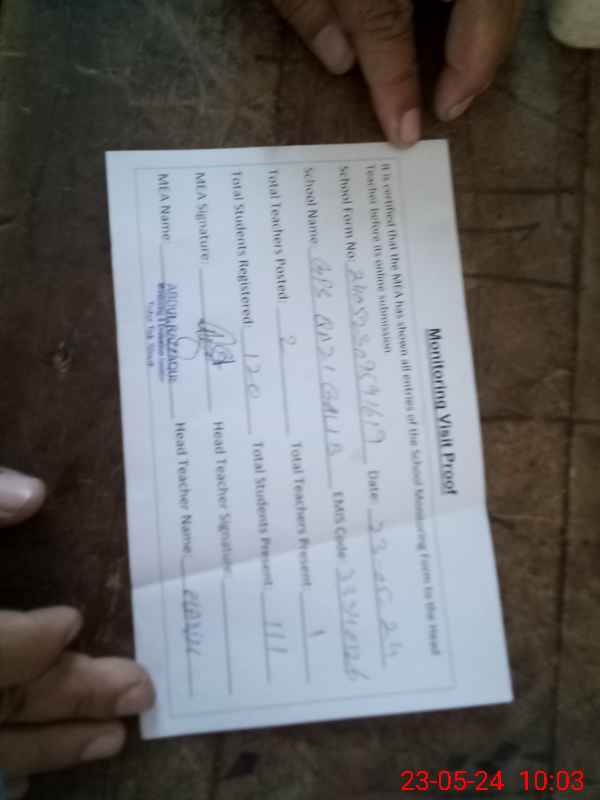 Monitoring Visit Proof
It is certified that the MEA has shown all entries of the School Monitoring Form to the Head
Teacher before its online submission.
School Form No: Date: 23-05-24
School Name: GPS QAZI GALIB EMIS Code:
Total Teachers Posted: 2 Total Teachers Present: 1
Total Students Registered: 120 Total Students Present: 111
MEA Signature: Head Teacher Signature:
MEA Name: ABDUL RAZZAQUE Head Teacher Name:
23-05-24 10:03